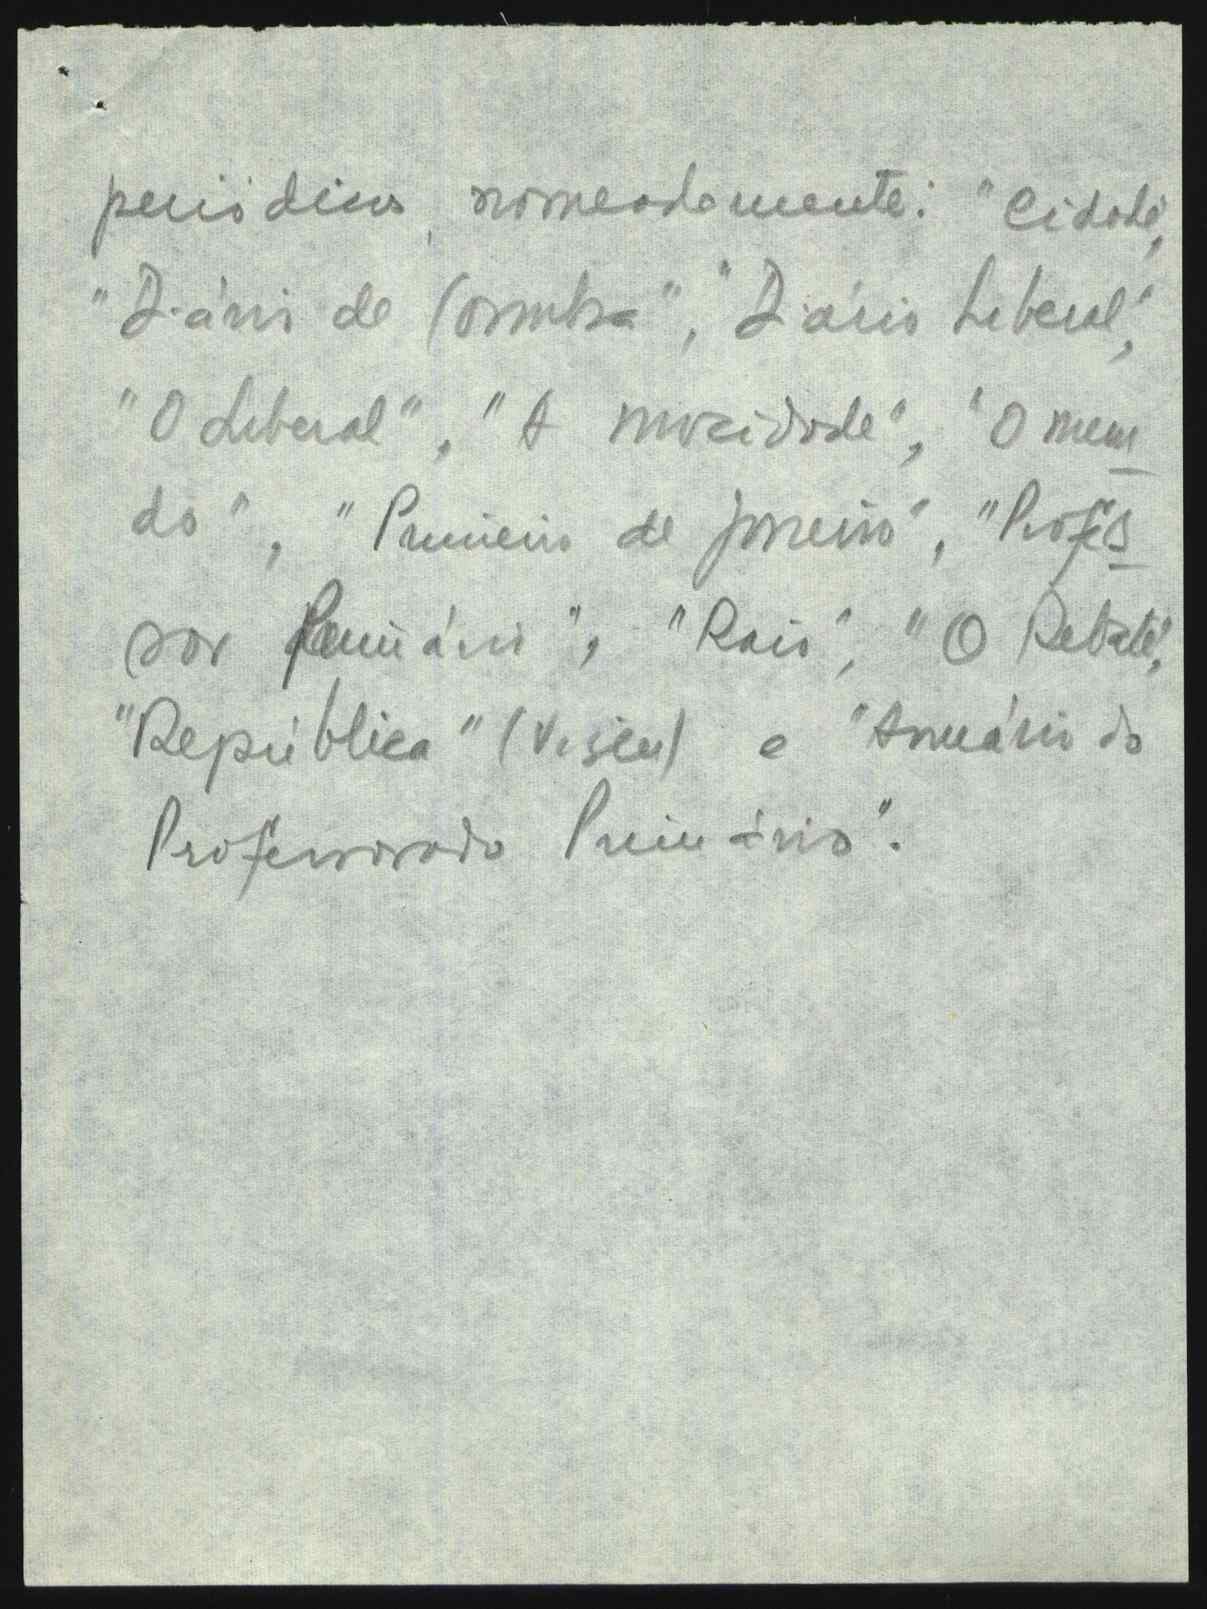 periódicos, nomeadamente: "Cidade",
"Diário de Coimbra", "Diário Liberal",
"O Liberal", "A mocidade", "O mun
do", "Primeiro de Janeiro", "Profes
sor Primário", "Raio", "O Rebate",
"República" (Viseu) e "Anuário do
Professorado Primário".